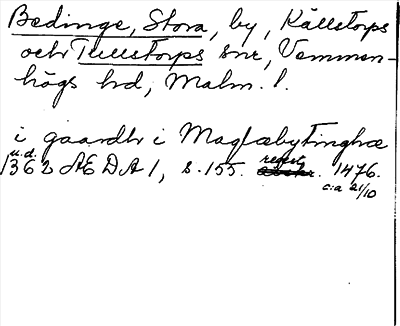 Bedinge, Stora, by, Källstorps
och Tullstorps snr, Vemmen-
högs hd, Malm. l.
i gaardh i Maglæbytinghæ
u.d. regest
1362 ÆDA 1, s. 155. 1476.
c:a 21/10